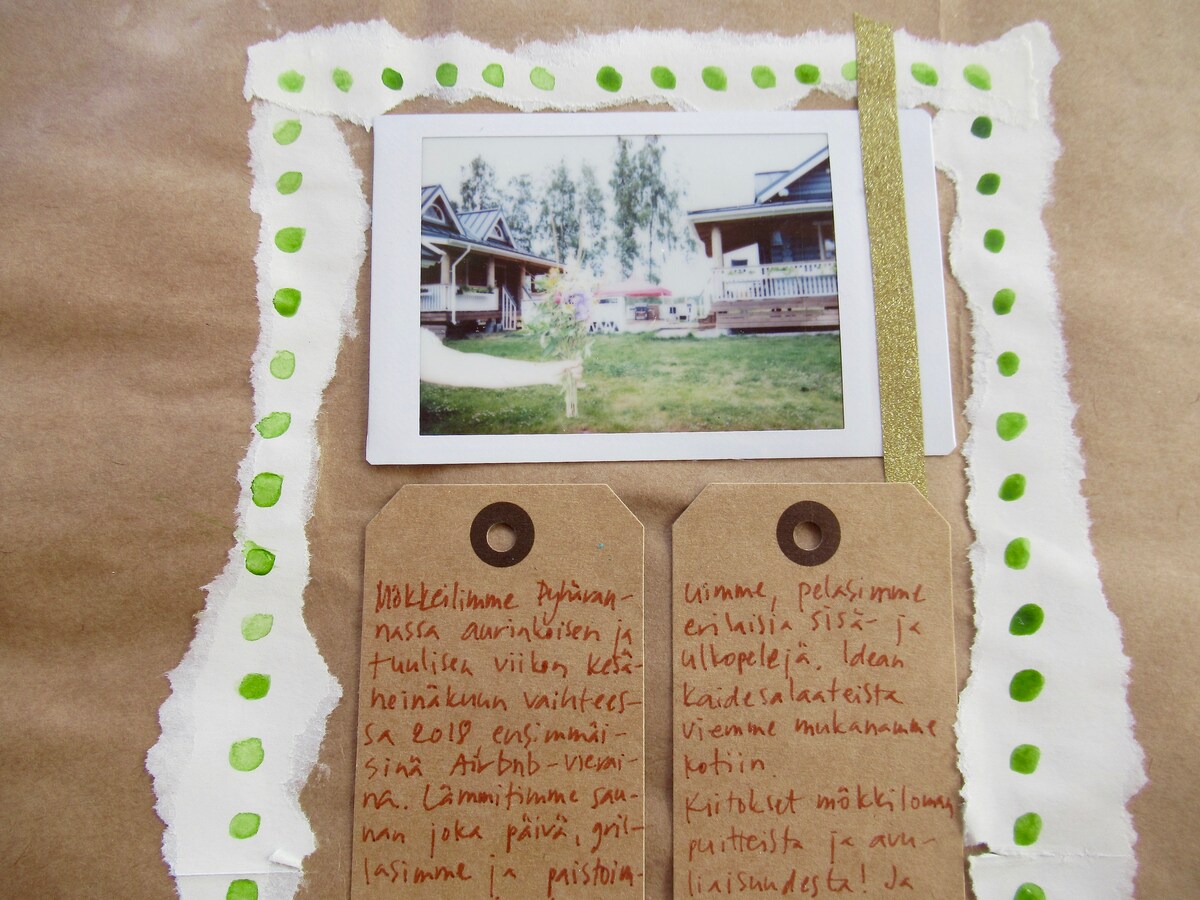 Mökkeilimme Pyhäran-
nassa aurinkoisen ja
tuulisen viikon kesä-
heinäkuun vaihtees-
sa 2018 ensimmäi-
sinä Airbnb-vierai-
na. Lämmitimme sau-
nan joka päivä, gril-
lasimme ja paistoim-
uimme, pelasimme
erilaisia sisä- ja
ulkopelejä. Idean
kaidesalaateista
viemme mukanamme
kotiin.
Kiitokset mökkiloman
puitteista ja avu-
liaisuudesta! Ja